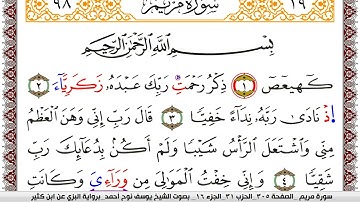 ٩٨ سُورَةُ مَرۡيَمَ ١٩
بِسۡمِ ٱللَّهِ ٱلرَّحۡمَٰنِ ٱلرَّحِيمِ
كٓهيعٓصٓ ١ ذِكۡرُ رَحۡمَتِ رَبِّكَ عَبۡدَهُۥ زَكَرِيَّآءَ ٢
إِذۡ نَادَىٰ رَبَّهُۥ نِدَآءً خَفِيّٗا ٣ قَالَ رَبِّ إِنِّي وَهَنَ ٱلۡعَظۡمُ
مِنِّي وَٱشۡتَعَلَ ٱلرَّأۡسُ شَيۡبٗا وَلَمۡ أَكُنۢ بِدُعَآئِكَ رَبِّ
شَقِيّٗا ٤ وَإِنِّي خِفۡتُ ٱلۡمَوَٰلِيَ مِن وَرَآءِيَ وَكَانَتِ
سورة مريم _الصفحة ٣٠٥_ الحزب ٣١_ الجزء ١٦_ بصوت الشيخ يوسف نوح أحمد_ برواية البزي عن ابن كثير